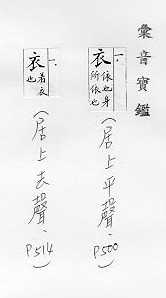 彙音寶鑑
一．
衣 依也身
所依也
（居上平聲、P500）
一．
衣 着衣
也
（居上去聲、P514）